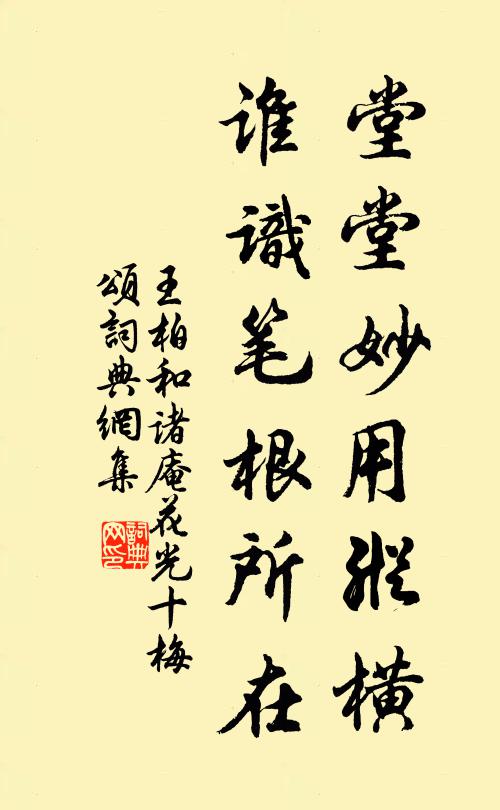 堂堂妙用縱橫
谁識笔根所在
王柏和诸庵花光十梅
頌詞典網集
詞典
网印